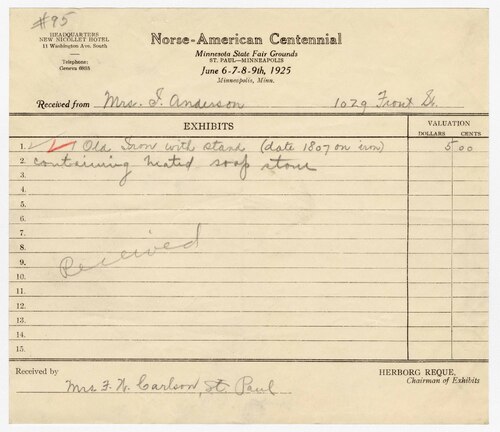 #95
HEADQUARTERS
NEW NICOLLET HOTEL
11 Washington Ave. South
Telephone:
Geneva 6805
Norse-American Centennial
Minnesota State Fair Grounds
ST. PAUL—MINNEAPOLIS
June 6-7-8-9th, 1925
Minneapolis, Minn.
Received from Mrs. I. Anderson 1029 Front St.
EXHIBITS
VALUATION
DOLLARS CENTS
1. 1 Old Iron with stand (date 1807 on iron) 5 00
2. containing heated soap stone
3.
4.
5.
6.
7.
8.
9. Received
10.
11.
12.
13.
14.
15.
Received by
HERBORG REQUE,
Chairman of Exhibits
Mrs. F. W. Carlson, St. Paul